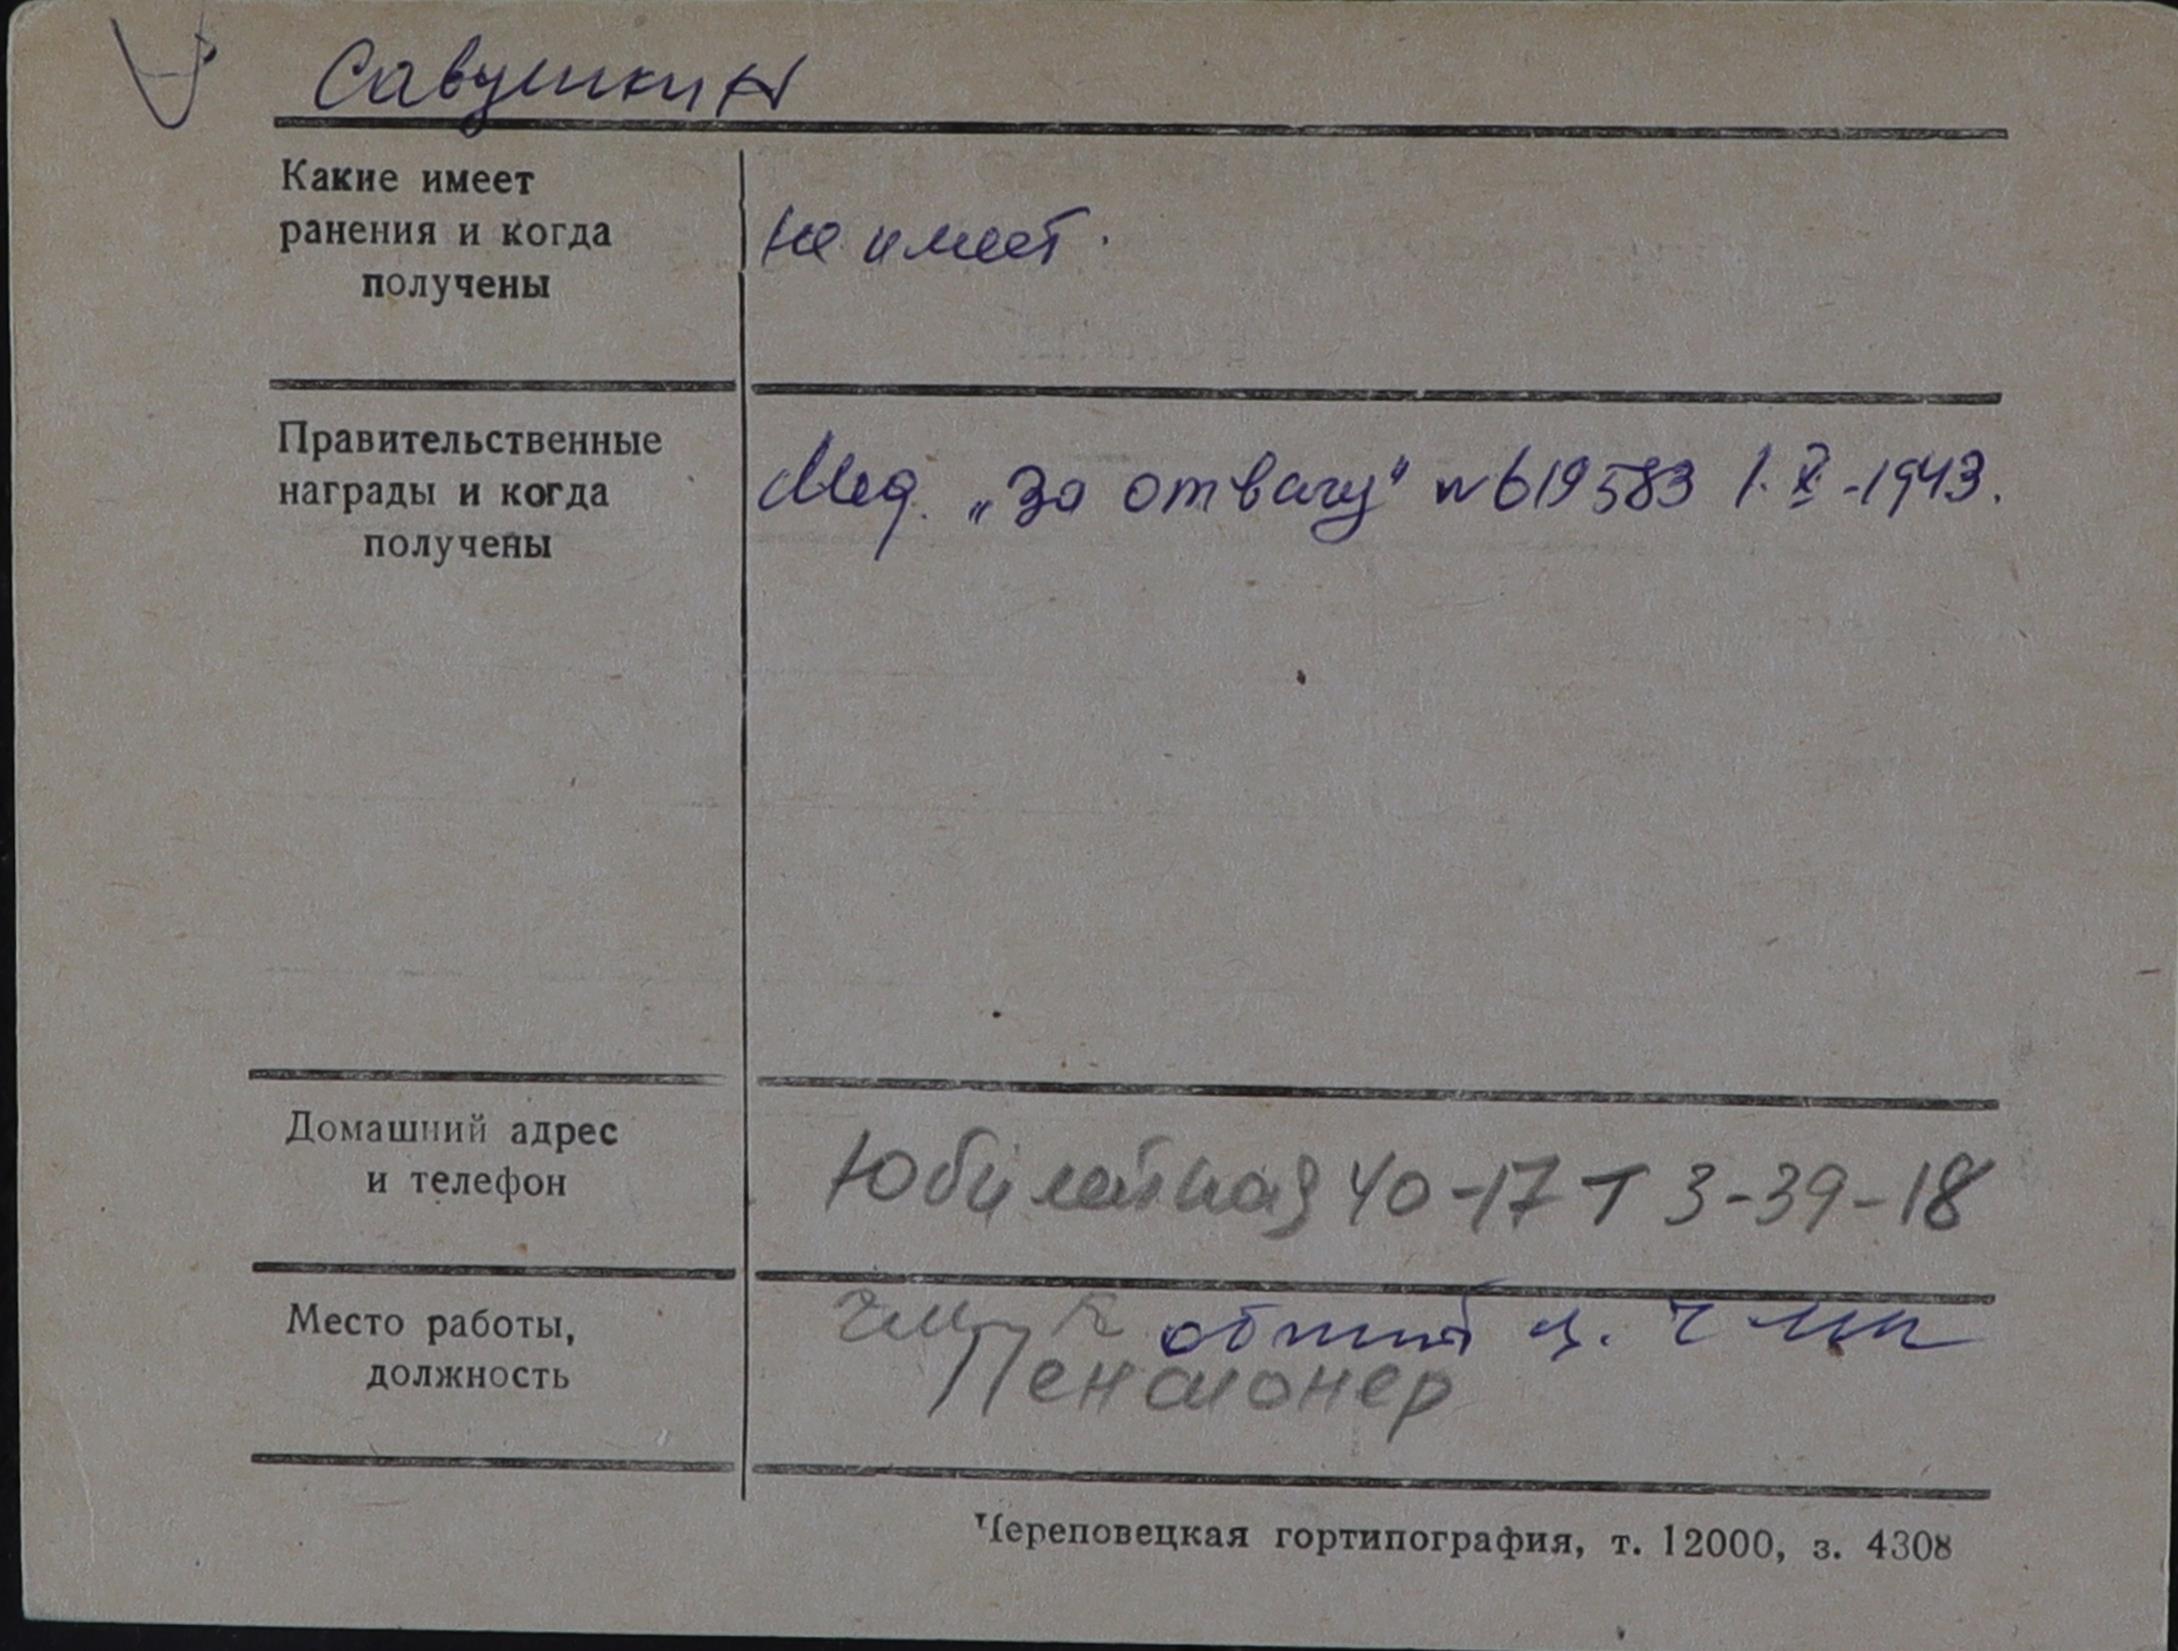 Савушкин
Какие имеет
ранения и когда
получены
не имеет.
Правительственные
награды и когда
получены
Мед. „За отвагу" № 619583 1.X-1943.
Домашний адрес
и телефон
Юбилейная 40-17 т 3-39-18
Место работы,
должность
Пенсионер
Череповецкая гортипография, т. 12000, з. 4308